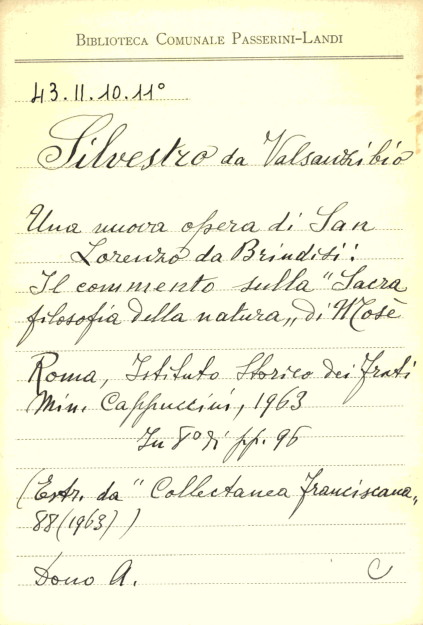 BIBLIOTECA COMUNALE PASSERINI-LANDI
43.II.10.11°
Silvestro da Valsanzibio
Una nuova opera di San
Lorenzo da Brindisi:
Il commento sulla "Sacra
filosofia della natura„ di Mosè
Roma, Istituto Storico dei Frati
Min. Cappuccini, 1963
In 8° di pp. 96
(Estr. da "Collectanea Franciscana„
88(1963))
Dono A. C